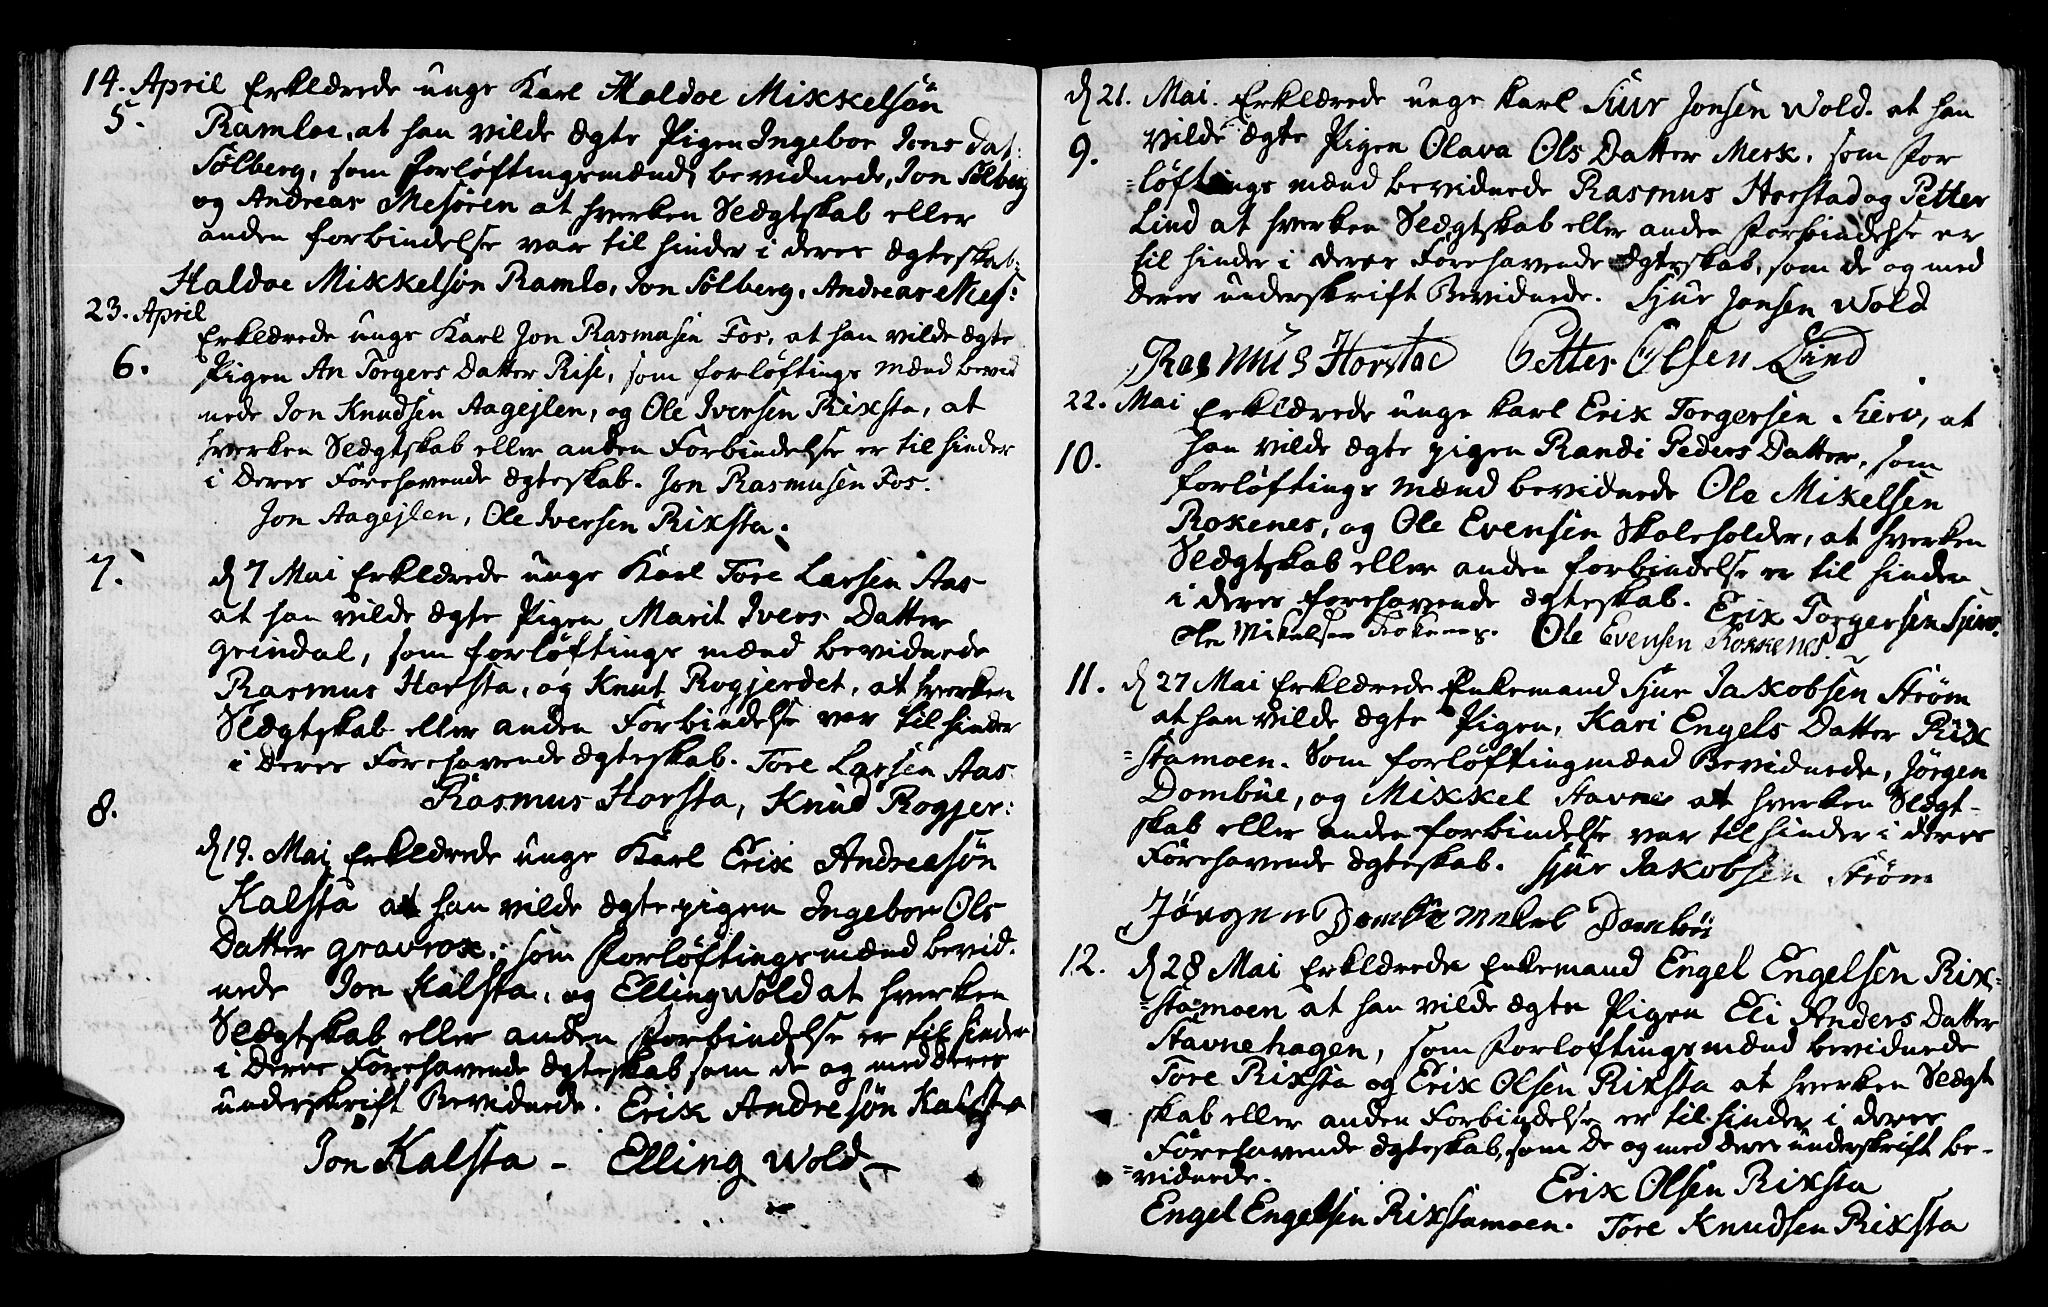 14. April Erklærede unge Karl Haldoe Mikkelsön
5. Ramloe, at han vilde Ægte Pigen Ingebor Jons Dat:
Sølberg, som Forløftingsmænd, bevidnede, Jon Sølberg
og Andreas Mesøren at hverken Slægtskab eller
anden forbindelse var til hinder i deres Ægteskab:
Haldoe Mikkelsøn Ramlo, Jon Sølberg, Andreas Mes:
23. April
Erklærede unge Karl Jon Rasmusen Fos, at han vilde Ægte
6. Pigen An Torgers Datter Rise, som forløftings Mænd bevid
nede Jon Knudsen Aagejlen, og Ole Iversen Rixsta, at
hverken Slægtskab eller anden Forbindelse er til hinder
i Deres Forehavende Ægteskab. Jon Rasmusen Fos.
Jon Aagejlen, Ole Iversen Rixsta.
7. d 7 Mai Erklærede unge Karl Tore Larsen Aas
at han vilde Ægte Pigen Marit Ivers Datter
Grindal, som forløftings mænd bevidnede
Rasmus Horsta, og Knut Rogjerdet, at hverken
Slægtskab eller anden Forbindelse var til hinder
i Deres Forehavende Ægteskab. Tore Larsen Aas
Rasmus Horsta, Knud Rogjer:
8.
d 19. Mai Erklærede unge Karl Erix Andreesøn
Kalsta at han vilde Ægte pigen Ingebor Ols
Datter Gravrox. som Forløftingsmænd bevid.
nede Jon Kalsta, og Elling Wold at hverken
Slægtskab eller anden Forbindelse er til hinder
i Deres Forehavende Ægteskab som de og med deres
underskrift Bevidnede. Erix Andresøn Kalsta
Jon Kalsta - Elling Wold
d 21. Mai. Erklærede unge Karl Siur Jonsen Wold. at han
9. vilde Ægte Pigen Olava Ols Datter Merk, som For
=løftings mænd bevidnede Rasmus Horstad og Petter
Lind at hverken Slægtskab eller anden Forbindelse er
til hinder i deres Forehavende Ægteskab, som de og med
Deres underskrift Bevidnede. Sjur Jonsen Wold
Rasmus Horstad Petter Olsen Lind
22. Mai Erklærede unge Karl Erix Torgersen Sierv, at
10. han vilde Ægte pigen Randi Peders Datter, som
forløftings mænd bevidnede Ole Mikelsen
Rokenes, og Ole Evensen Skoleholder, at hverken
Slægtskab eller anden forbindelse er til hinder
i deres forehavende Ægteskab. Erix Torgersen
Ole Mikelsen Rokenes. Ole Evensen Rokkenes.
11. d 27 Mai Erklærede Enkemand Sjur Jakobsen Strøm
at han vilde Ægte Pigen, Kari Engels Datter Rix
=stamoen. Som forløftingmænd Bevidnede, Jörgen
Dombüe, og Mikkel Stavne at hverken Slægt-
skab eller anden forbindelse var til hinder i deres
Forehavende Ægteskab. Sjur Jakobsen Strøm
Jörgen
12. d 28 Mai Erklærede Enkemand Engel Engelsen Rix=
=stamoen at han vilde Ægte Pigen Eli Anders Datter
Stavnehagen, som Forløftingsmænd bevidnede
Tore Rixsta og Erix Olsen Rixsta at hverken Slægt
skab eller anden Forbindelse er til hinder i deres
Forehavende Ægteskab, som de og med deres underskrift be-
=vidnede. Erix Olsen Rixsta
Engel Engelsen Rixstamoen. Tore Knudsen Rixsta